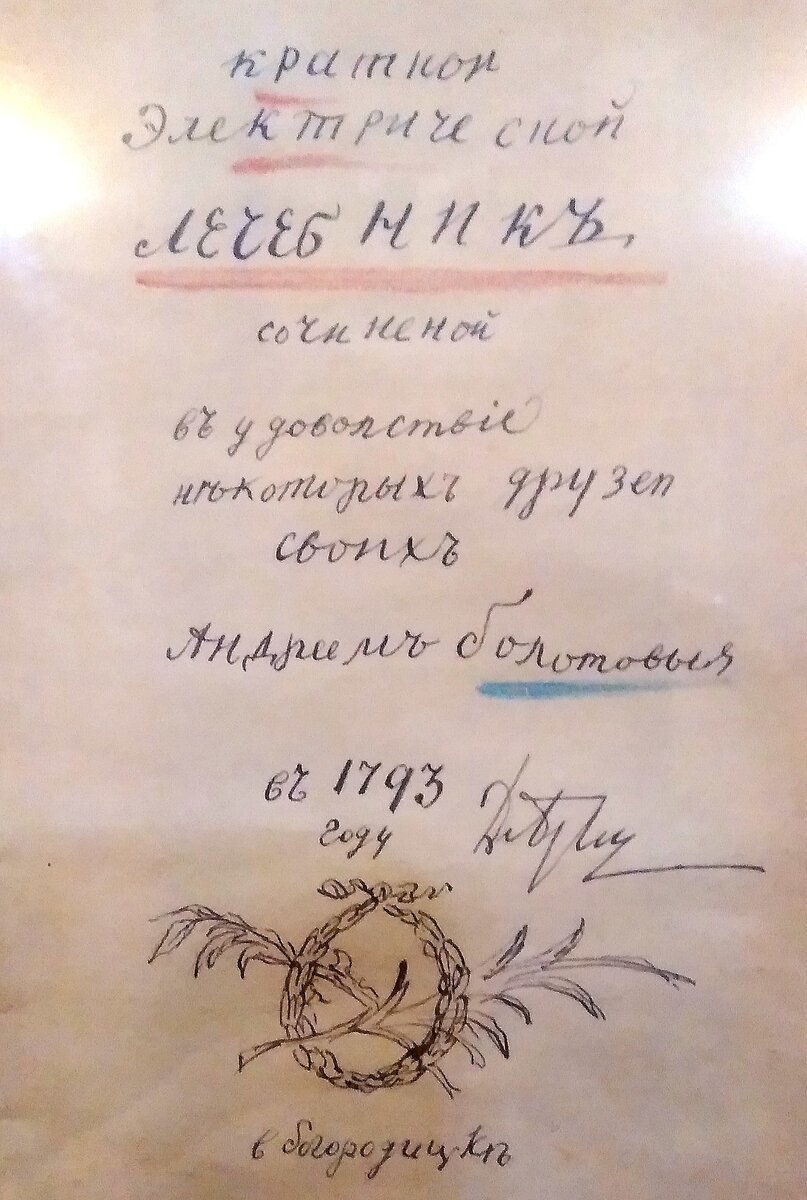 краткой
Электриче ской
ЛЕЧЕБНИКЪ
сочиненой
въ удоволствіе
нѣкоторыхъ друзей
своихъ
Андреемъ болотовыя
въ 1793
году
в богородицкѣ